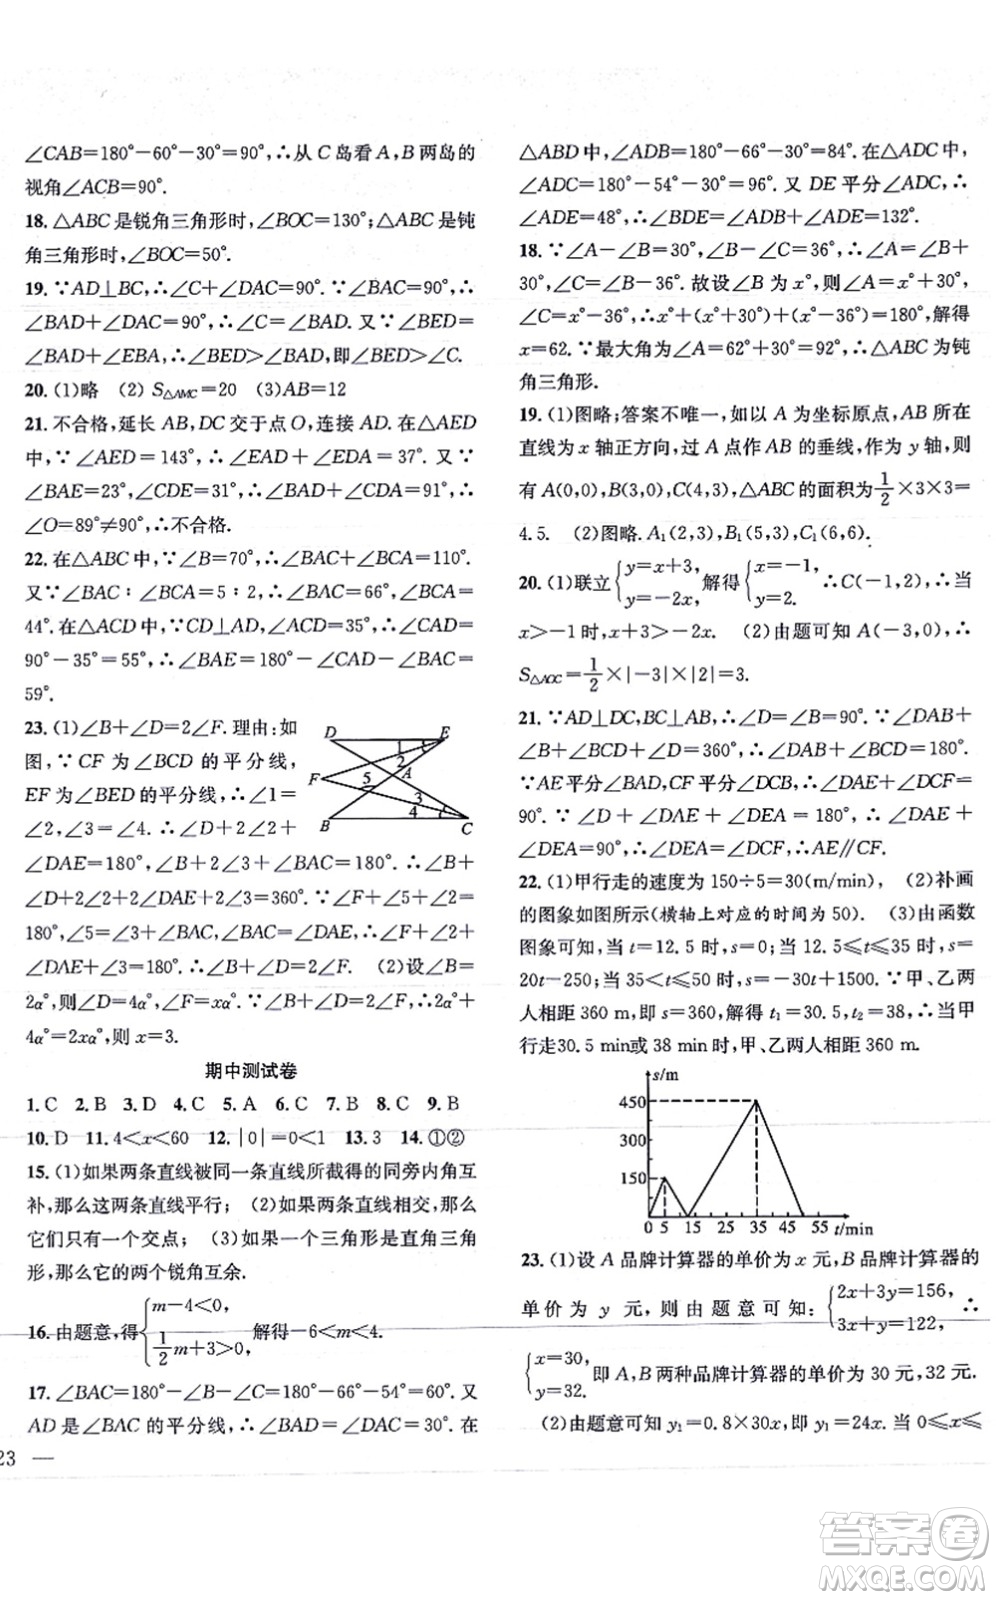 ∠CAB=180°-60°-30°=90°,∴从 C 岛看 A,B 两岛的
视角∠ACB=90°.
18. △ABC 是锐角三角形时,∠BOC=130°;△ABC 是钝
角三角形时,∠BOC=50°.
19. ∵AD⊥BC,∴∠C+∠DAC=90°. ∵∠BAC=90°,∴
∠BAD+∠DAC=90°,∴∠C=∠BAD. 又∵∠BED=
∠BAD+∠EBA,∴∠BED>∠BAD,即∠BED>∠C.
20. (1)略 (2) S△AMC=20 (3)AB=12
21. 不合格,延长 AB,DC 交于点 O,连接 AD. 在△AED
中,∵∠AED=143°,∴∠EAD+∠EDA=37°. 又∵
∠BAE=23°,∠CDE=31°,∴∠BAD+∠CDA=91°,∴
∠O=89°≠90°,∴不合格.
22. 在△ABC 中,∵∠B=70°,∴∠BAC+∠BCA=110°.
又∵∠BAC∶∠BCA=5∶2,∴∠BAC=66°,∠BCA=
44°. 在△ACD 中,∵CD⊥AD,∠ACD=35°,∴∠CAD=
90°-35°=55°,∴∠BAE=180°-∠CAD-∠BAC=
59°.
23. (1)∠B+∠D=2∠F. 理由:如
图,∵CF 为∠BCD 的平分线,
EF 为∠BED 的平分线,∴∠1=
∠2,∠3=∠4. ∴∠D+2∠2+
∠DAE=180°,∠B+2∠3+∠BAC=180°. ∴∠B+
∠D+2∠2+∠DAE+2∠3=360°. ∵∠F+∠5+∠2=
180°,∠5=∠3+∠FAC,∠FAC=∠DAE,∴∠F+∠2+
∠DAE+∠3=180°. ∴∠B+∠D=2∠F. (2)设∠B=
2α°,则∠D=4α°,∠F=xα°. ∵∠B+∠D=2∠F,∴2α°+
4α°=2xα°,则 x=3.
D
E
F
5
2
A
3
4
B
C
期中测试卷
1. C 2. B 3. D 4. C 5. A 6. C 7. B 8. C 9. B
10. D 11. 4<x<60 12. |0|=0<1 13. 3 14. ①②
15. (1)如果两条直线被同一条直线所截得的同旁内角互
补,那么这两条直线平行; (2)如果两条直线相交,那么
它们只有一个交点; (3)如果一个三角形是直角三角
形,那么它的两个锐角互余.
16. 由题意,得{m-4<0, 1/2m+3>0, 解得-6<m<4.
17. ∠BAC=180°-∠B-∠C=180°-66°-54°=60°. 又
AD 是∠BAC 的平分线,∴∠BAD=∠DAC=30°. 在
23 —
△ABD 中,∠ADB=180°-66°-30°=84°. 在△ADC 中,
∠ADC=180°-54°-30°=96°. 又 DE 平分∠ADC,∴
∠ADE=48°,∴∠BDE=∠ADB+∠ADE=132°.
18. ∵∠A-∠B=30°,∠B-∠C=36°,∴∠A=∠B+
30°,∠C=∠B-36°. 故设∠B 为 x°,则∠A=x°+30°,
∠C=x°-36°,∴x°+(x°+30°)+(x°-36°)=180°,解得
x=62. ∵最大角为∠A=62°+30°=92°,∴△ABC 为钝
角三角形.
19. (1)图略;答案不唯一,如以 A 为坐标原点,AB 所在
直线为 x 轴正方向,过 A 点作 AB 的垂线,作为 y 轴,则
有 A(0,0),B(3,0),C(4,3),△ABC 的面积为1/2×3×3=
4.5. (2)图略. A₁(2,3),B₁(5,3),C₁(6,6).
20. (1)联立{y=x+3, y=-2x, 解得{x=-1, y=2. ∴C(-1,2),∴当
x>-1 时,x+3>-2x. (2)由题可知 A(-3,0),∴
S△AOC=1/2×|-3|×|2|=3.
21. ∵AD⊥DC,BC⊥AB,∴∠D=∠B=90°. ∵∠DAB+
∠B+∠BCD+∠D=360°,∴∠DAB+∠DCB=180°.
∵AE 平分∠BAD,CF 平分∠BCD,∴∠DAE+∠DCF=
90°. ∵∠D+∠DAE+∠DEA=180°,∴∠DAE+
∠DEA=90°,∴∠DEA=∠DCF,∴AE∥CF.
22. (1)甲行走的速度为 150÷5=30(m/min), (2)补画
的图象如图所示(横轴上对应的时间为 50). (3)由函数
图象可知,当 t=12.5 时,s=0;当 12.5≤t≤35 时,s=
20t-250;当 35<t≤50 时,s=-30t+1500. ∵甲、乙两
人相距 360 m,即 s=360,解得 t₁=30.5,t₂=38,∴当甲
行走30.5 min或 38 min时,甲、乙两人相距 360 m.
s/m
450
300
150
0 5 15 25 35 45 55 t/min
23. (1)设 A 品牌计算器的单价为 x 元,B 品牌计算器的
单价为 y 元,则由题意可知:{2x+3y=156, 3x+y=122, ∴
{x=30, y=32. 即 A,B 两种品牌计算器的单价为 30 元,32 元.
(2)由题意可知 y₁=0.8×30x,即 y₁=24x. 当 0≤x≤
答案卷
MXQE.COM